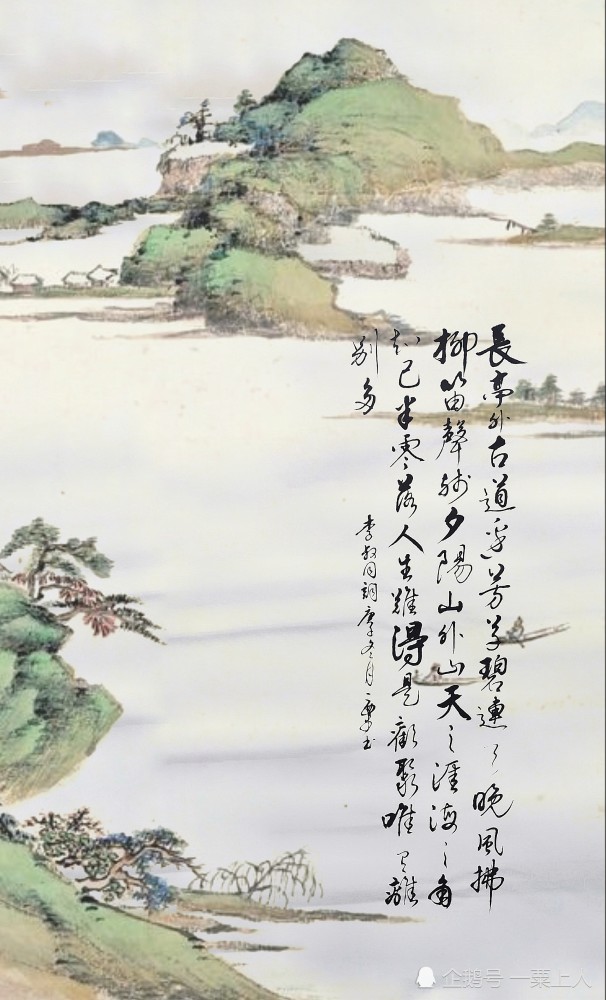 長亭外古道邊芳草碧連天晚風拂
柳笛聲殘夕陽山外山天之涯海之角
知己半零落人生難得是歡聚唯有離
別多
李叔同詞庚子冬月一粟書
企鹅号 一粟上人